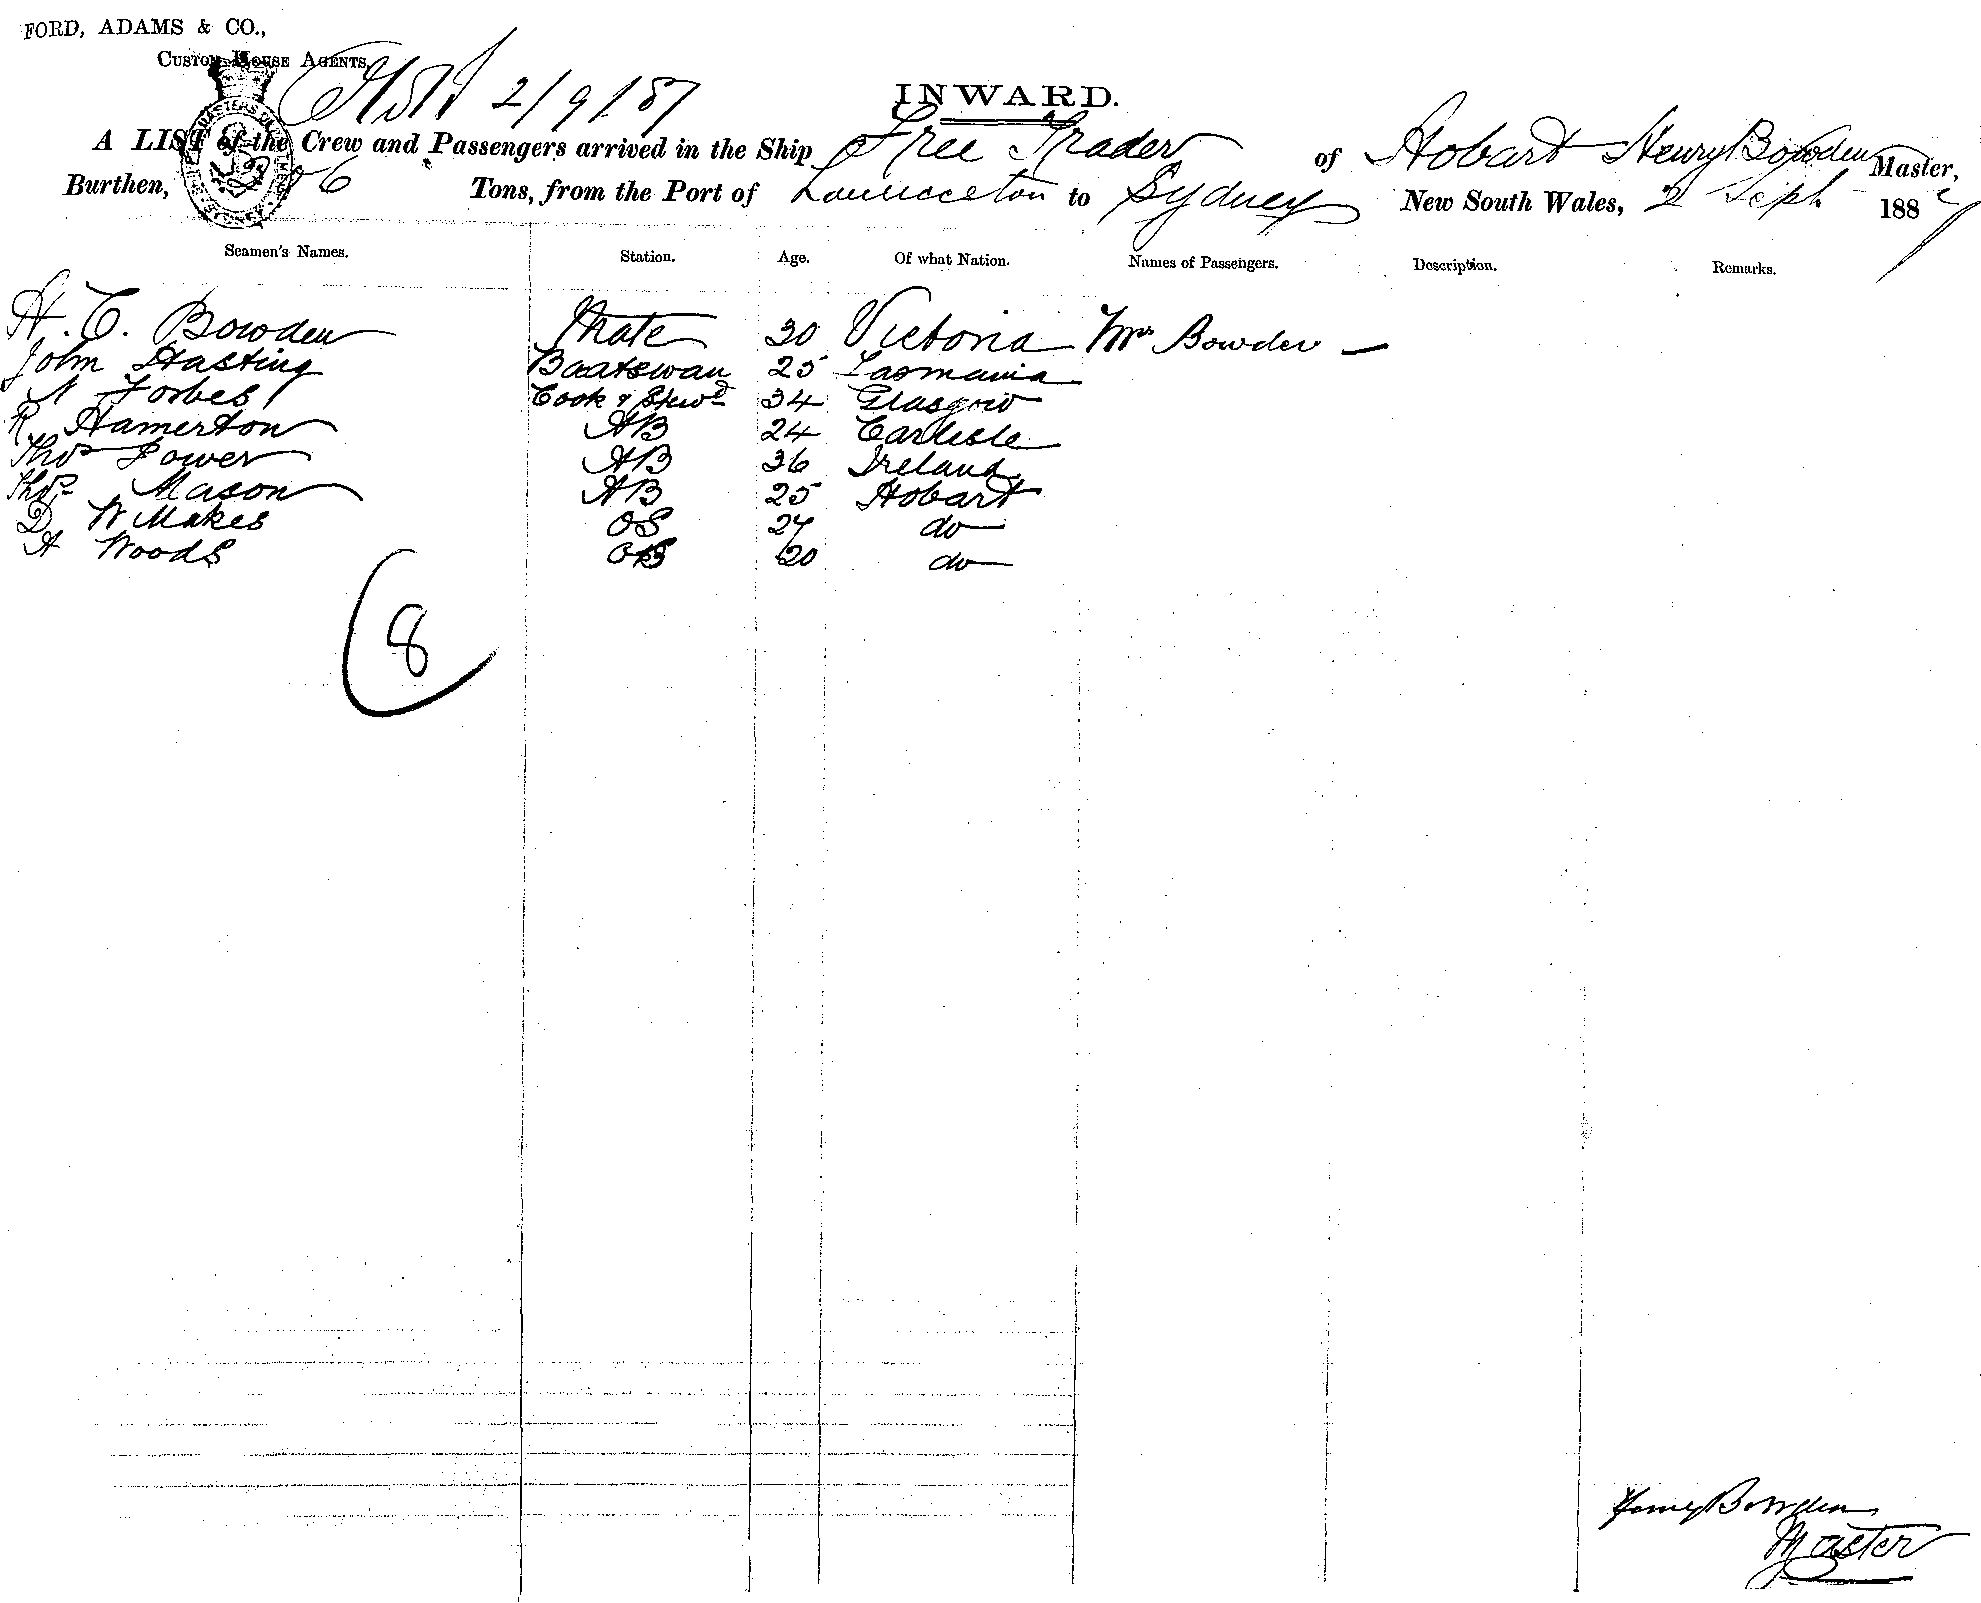 FORD, ADAMS & CO.,
CUSTOM HOUSE AGENTS,
2/9/87
INWARD.
A LIST of the Crew and Passengers arrived in the Ship Free Trader of Hobart Henry Bowden Master,
Burthen, 6 Tons, from the Port of Launceston to Sydney New South Wales, 2 Sept 1887
Seamen's Names. Station. Age. Of what Nation. Names of Passengers. Description. Remarks.
H. C. Bowden Mate 30 Victoria Mrs Bowden
John Hasting Boatswan 25 Tasmania
Forbes Cook & Stewd 34 Glasgow
R Hamerton AB 24 Carlisle
Thos Power AB 36 Ireland
Thos Mason AB 25 Hobart
D W Makes OS 27 do
A Woods OS 20 do
8
Henry Bowden
Master